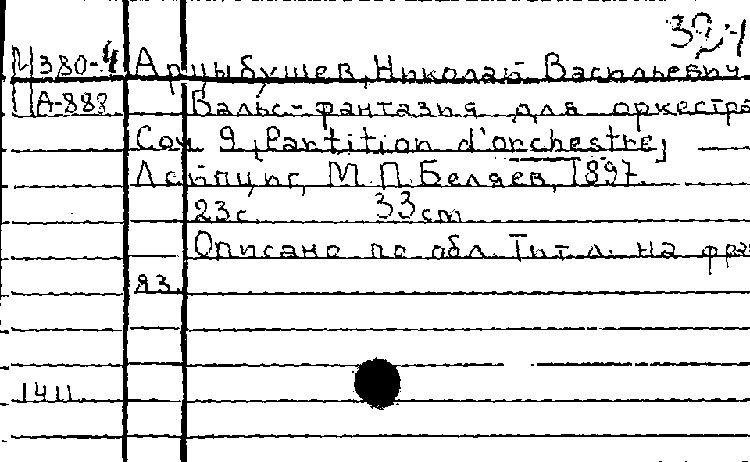 324
М380-4 Арцыбушев, Николай Васильевич
Ц А-888 Вальс-фантазия для оркестра
Соч 9 [Partition d'orchestre]
Лейпциг, М.П.Беляев, 1897.
23с. 33cm
Описано по обл. Тит.л. на фра
яз.
1411